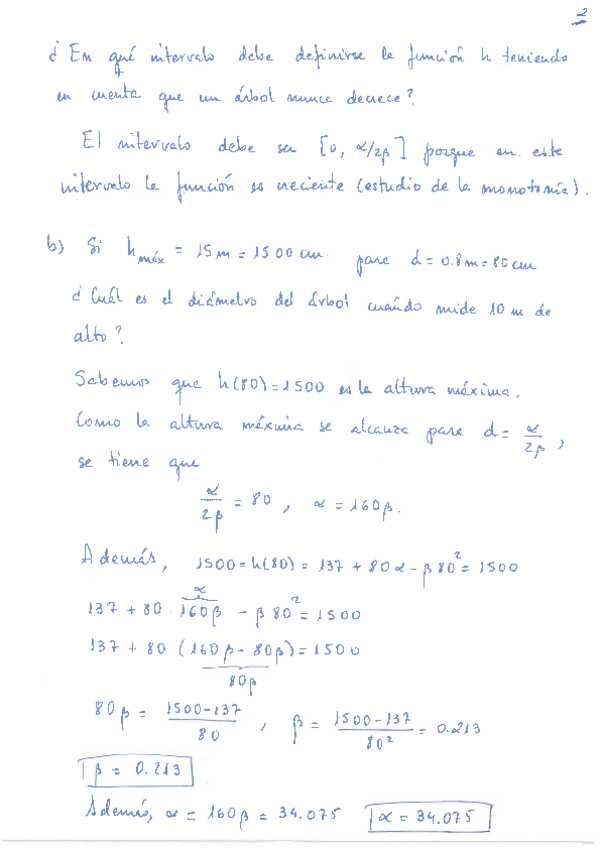 2
¿ En qué intervalo debe definirse la función h teniendo
en cuenta que un árbol nunca decrece?
El intervalo debe ser [0, α/2β] porque en este
intervalo la función es creciente (estudio de la monotonía).
b) Si hmáx = 15 m = 1500 cm. para d = 0.8 m = 80 cm
¿ Cuál es el diámetro del árbol cuándo mide 10 m de
alto?
Sabemos que h(80) = 1500 es la altura máxima.
Como la altura máxima se alcanza para d = α/2β,
se tiene que
α/2β = 80 , α = 160β.
Además, 1500 = h(80) = 137 + 80α - β80² = 1500
α
137 + 80 · 160β - β80² = 1500
137 + 80 (160β - 80β) = 1500
80β
80β = (1500-137)/80 , β = (1500-137)/80² = 0.213
β = 0.213
Además, α = 160β = 34.075 α = 34.075